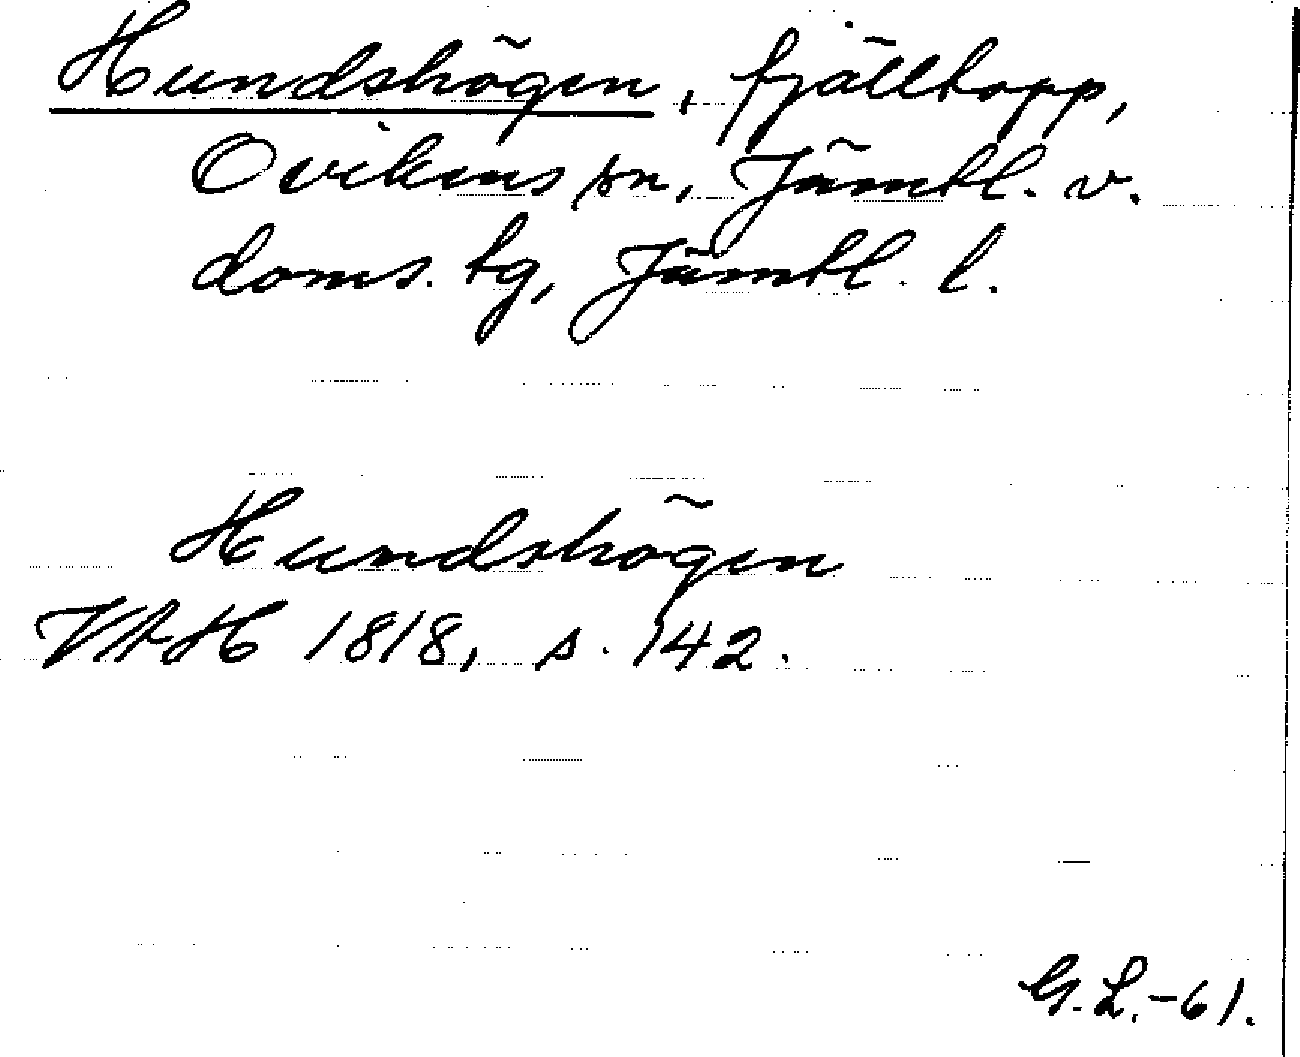 Hundshögen, fjälltopp,
Ovikens sn, Jämtl. v.
doms. tg, Jämtl. l.
Hundshögen
VAH 1818, s. 142.
G.L.-61.